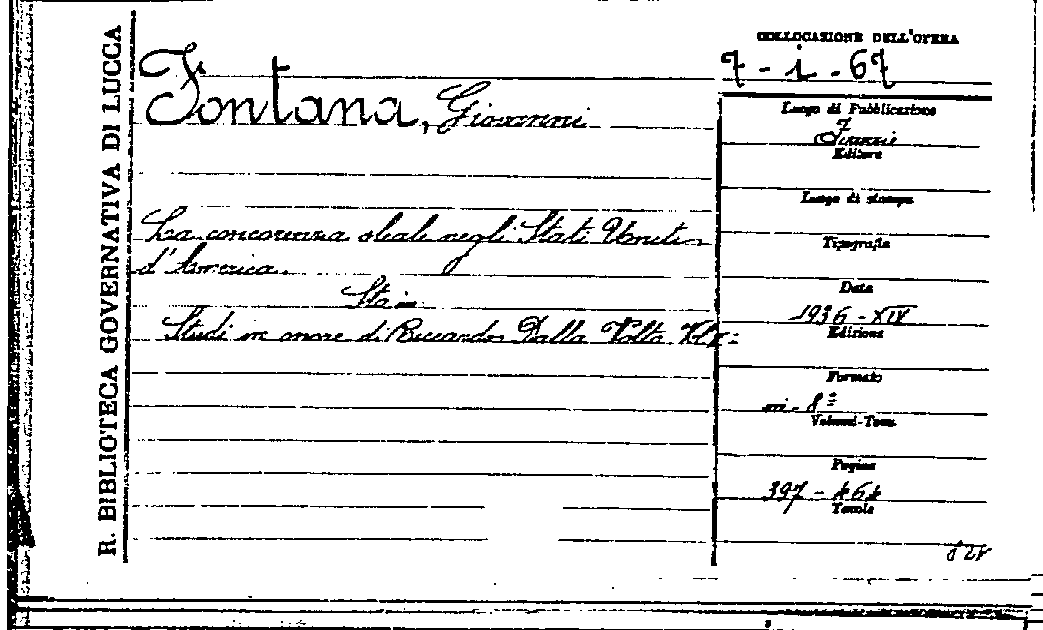 R. BIBLIOTECA GOVERNATIVA DI LUCCA
COLLOCAZIONE DELL'OPERA
7 - i - 67
Fontana, Giovanni
La concorrenza sleale negli Stati Uniti
d'America.
Sta in
Studi in onore di Riccardo Dalla Volta
Luogo di Pubblicazione
Firenze
Editore
Luogo di stampa
Tipografia
Data
1936 - XIV
Edizione
Formato
in - 8º
Volumi-Tomi
Pagine
397 - 464
Tavole